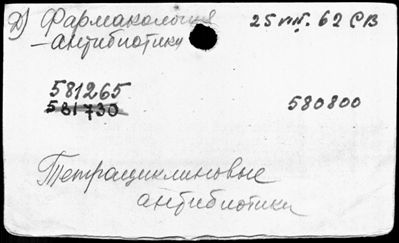 Д) Фармакология 25 VII. 62 СВ
– антибиотики
581265
581730 580800
Тетрациклиновые
антибиотики